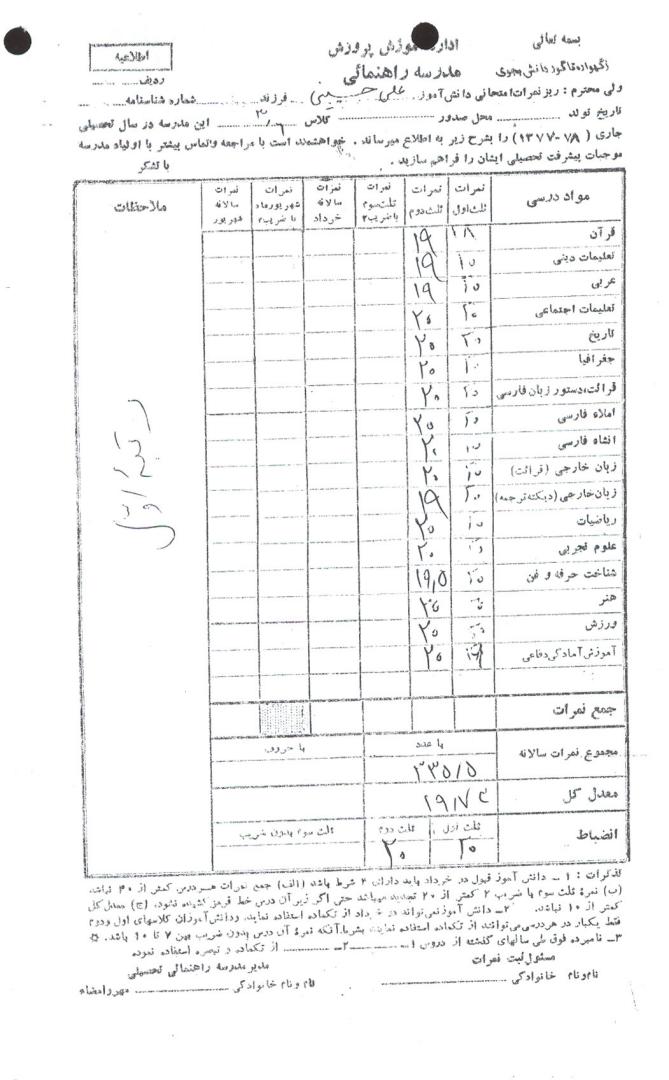 بسمه تعالی
اداره آموزش پرورش
اطلاعیه
مدرسه راهنمائی
ردیف
ولی محترم : ریز نمرات امتحانی دانش آموز علی حسینی فرزند شماره شناسنامه
تاریخ تولد محل صدور کلاس این مدرسه در سال تحصیلی
جاری ( ۷۸-۱۳۷۷ ) را بشرح زیر به اطلاع میرساند . خواهشمند است با مراجعه وتماس بیشتر با اولیاء مدرسه
موجبات پیشرفت تحصیلی ایشان را فراهم سازید . با تشکر
مواد درسی نمرات ثلث اول نمرات ثلث دوم نمرات ثلث سوم با ضریب ۲ نمرات سالانه خرداد نمرات شهریورماه با ضریب ۲ نمرات سالانه شهریور ملاحظات
قرآن ۱۸ ۱۹
تعلیمات دینی ۱۹
عربی ۱۹
تعلیمات اجتماعی ۲۰ ۲۰
تاریخ ۲۰ ۲۰
جغرافیا ۲۰
قرائت، دستور زبان فارسی ۲۰ ۲۰
املاء فارسی ۲۰ ۲۰
انشاء فارسی ۲۰
زبان خارجی (قرائت) ۲۰
زبان خارجی (دیکته ترجمه) ۲۰ ۱۹
ریاضیات ۲۰
علوم تجربی ۲۰
شناخت حرفه و فن ۱۹,۵
هنر ۲۰
ورزش ۲۰
آموزش آمادگی دفاعی ۲۰
رتبهٔ اوّل
جمع نمرات
مجموع نمرات سالانه با عدد با حروف
۳۳۵/۵
معدل کل ۱۹/۷۴
انضباط ثلث اول ثلث دوم ثلث سوم بدون ضریب
۲۰ ۲۰
تذکرات : ۱ - دانش آموز قبول در خرداد باید دارای ۴ شرط باشد (الف) جمع نمرات هر درس کمتر از ۴۰ نباشد
(ب) نمرهٔ ثلث سوم با ضریب ۲ کمتر از ۲۰ تجدید میباشد حتی اگر زیر آن درس خط قرمز کشیده نشود، (ج) معدل کل
کمتر از ۱۰ نباشد. ۲- دانش آموز نمی‌تواند در خرداد از تکماده استفاده نماید. ودانش آموزان کلاسهای اول ودوم
فقط یکبار در هر درسی می‌توانند از تکماده استفاده نمایند بشرط آنکه نمرهٔ آن درس بدون ضریب بین ۷ تا ۱۰ باشد.
۳- نامبرده فوق طی سالهای گذشته از دروس ۱- ۲- از تکماده و تبصره استفاده نموده
مسئول ثبت نمرات مدیر مدرسه راهنمائی تحصیلی
نام و نام خانوادگی نام و نام خانوادگی مهر و امضاء